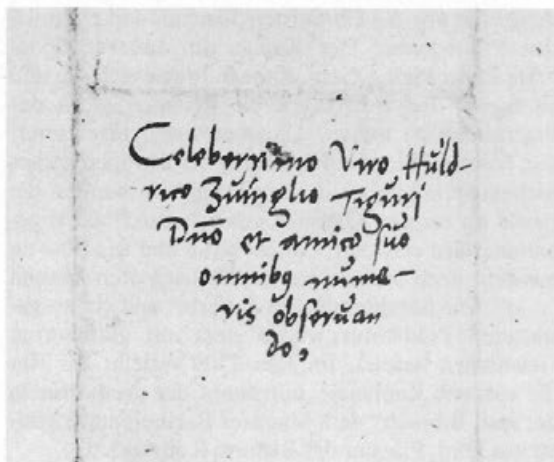 Celeberrimo Viro Huld-
rico Zuinglio Tiguri
Dno et amico suo
omnibq nume-
ris obseruan
do,